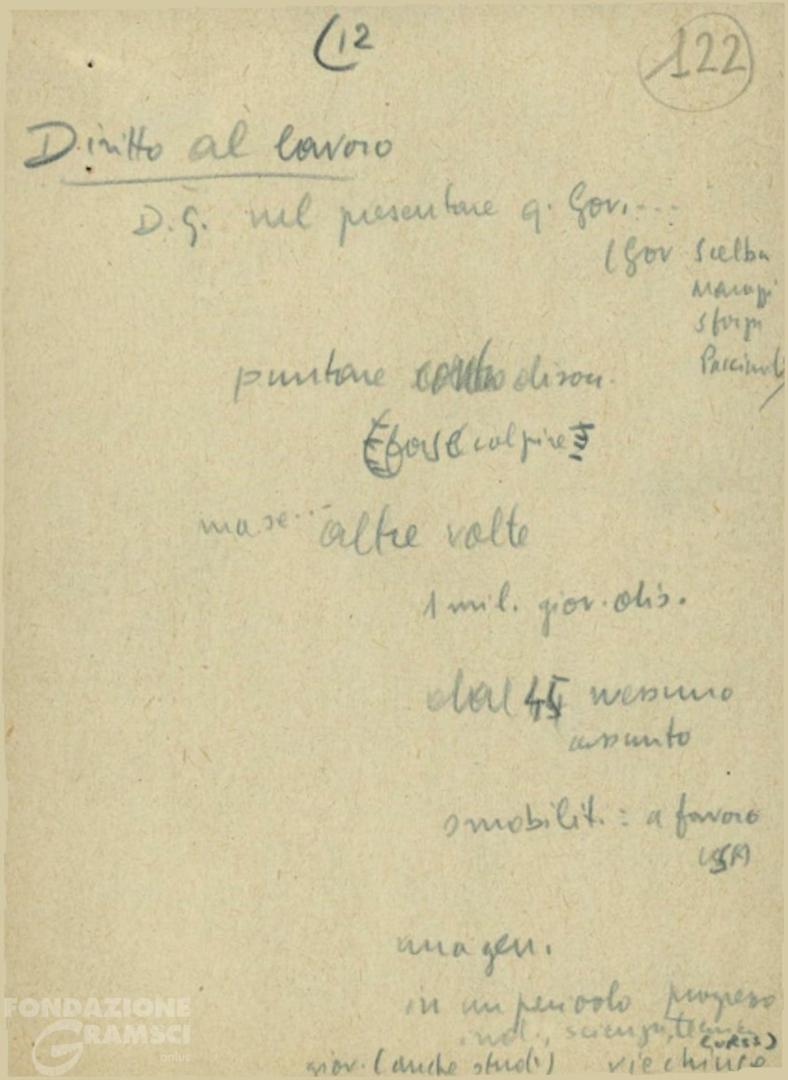 (12
122
Diritto al lavoro
D.G. nel presentare q. Gov....
(Gov Scelba
Marazzi
Sforza
Pacciardi
puntare contro disoc.
(forse colpire)
ma se... altre volte
1 mil. giov. dis.
dal 45 nessuno
assunto
smobilit.: a favore
USA
una gen.
in un periodo progresso
ind., scienza, tecnica
(URSS)
giov. (anche studi) vie chiuse
FONDAZIONE
GRAMSCI
onlus